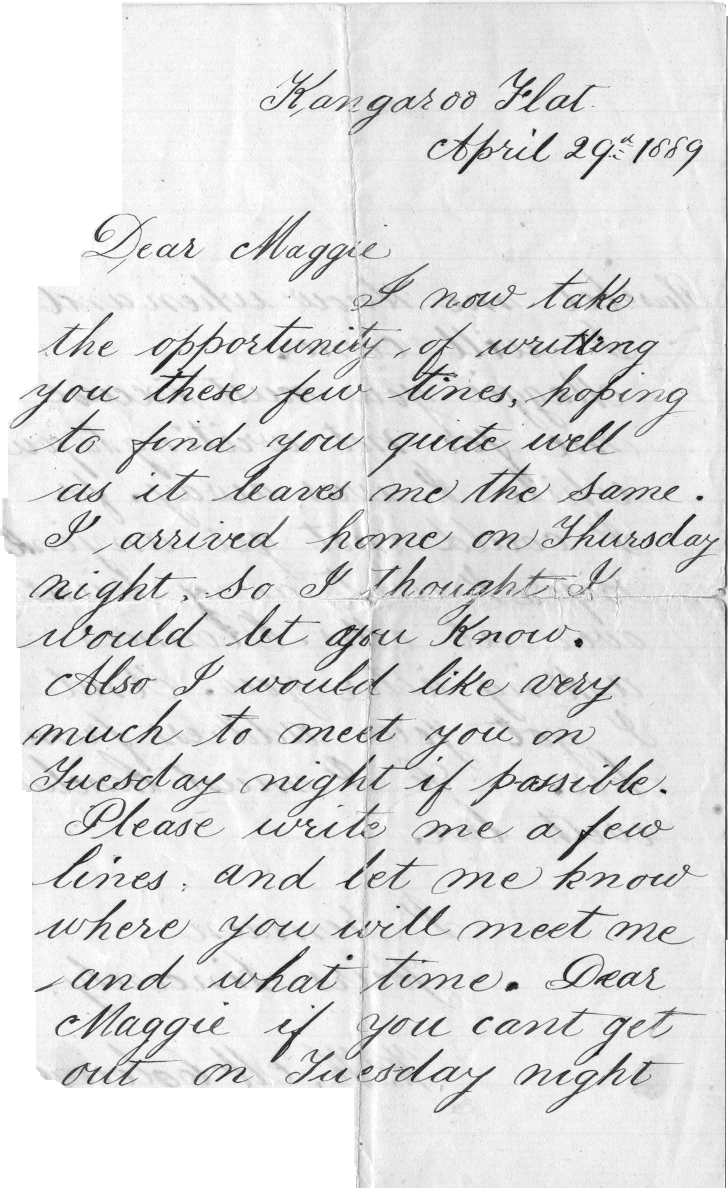 Kangaroo Flat.
April 29th 1889
Dear Maggie
I now take
the opportunity of writting
you these few lines, hoping
to find you quite well
as it leaves me the same.
I arrived home on Thursday
night, so I thought I
would let you Know.
Also I would like very
much to meet you on
Tuesday night if possible.
Please write me a few
lines, and let me know
where you will meet me
and what time. Dear
Maggie if you cant get
out on Tuesday night